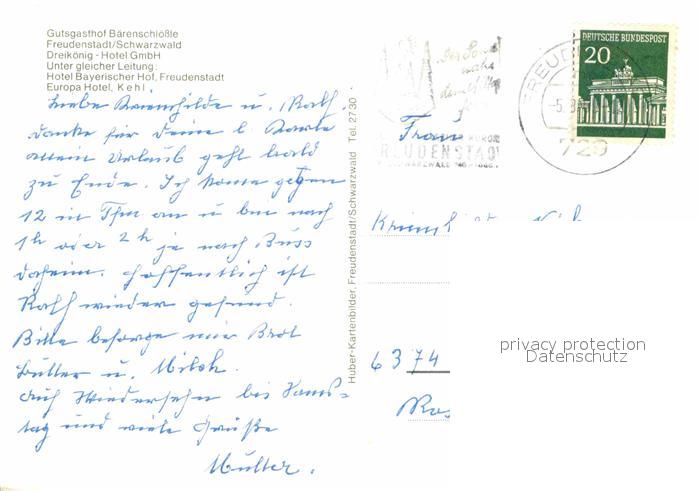 Gutsgasthof Bärenschlößle
Freudenstadt/Schwarzwald
Dreikönig - Hotel GmbH
Unter gleicher Leitung:
Hotel Bayerischer Hof, Freudenstadt
Europa Hotel, Kehl
Liebe u.
danke für Deine l Karte
mein Urlaub geht bald
zu Ende. Ich komme gegen
12 in an u bin nach
1h oder 2h je nach Buss
daheim. hoffentlich ist
wieder gesund.
Bitte besorge mir Brot
Butter u. Milch.
auf Wiedersehen bei Sams-
tag und viele Grüße
Mutter.
Huber-Kartenbilder, Freudenstadt/Schwarzwald Tel. 2730
DEUTSCHE BUNDESPOST
20
729
Frau
6374
privacy protection
Datenschutz